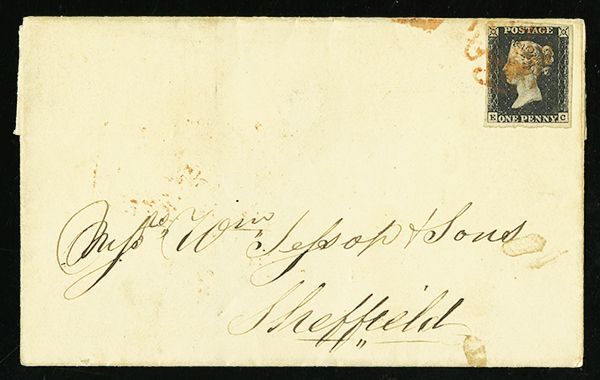 POSTAGE
ONE PENNY
E C
Messrs Wm Jessop & Sons
Sheffield